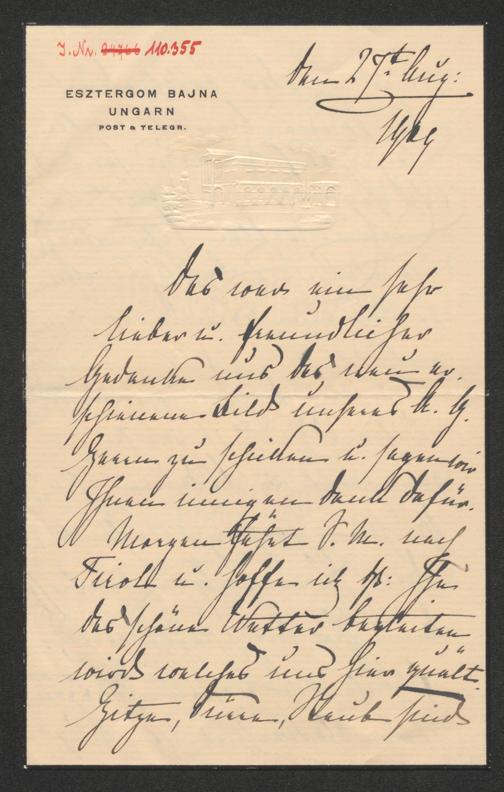 I. Nr. 110.355
den 27t Aug:
ESZTERGOM BAJNA
UNGARN
POST & TELEGR.
1909
Das war ein sehr
lieber u. freundlicher
Gedanke uns das neu er,
schienene Bild unseres A. H.
Herrn zu schicken u. sagen wir
Ihnen innigen Dank dafür.
Morgen fährt S. M. nach
Tirol u. hoffe ich Ihn
das schöne Wetter begleiten
wird welches uns hier quält.
Hitze, Dürre, Staub sind